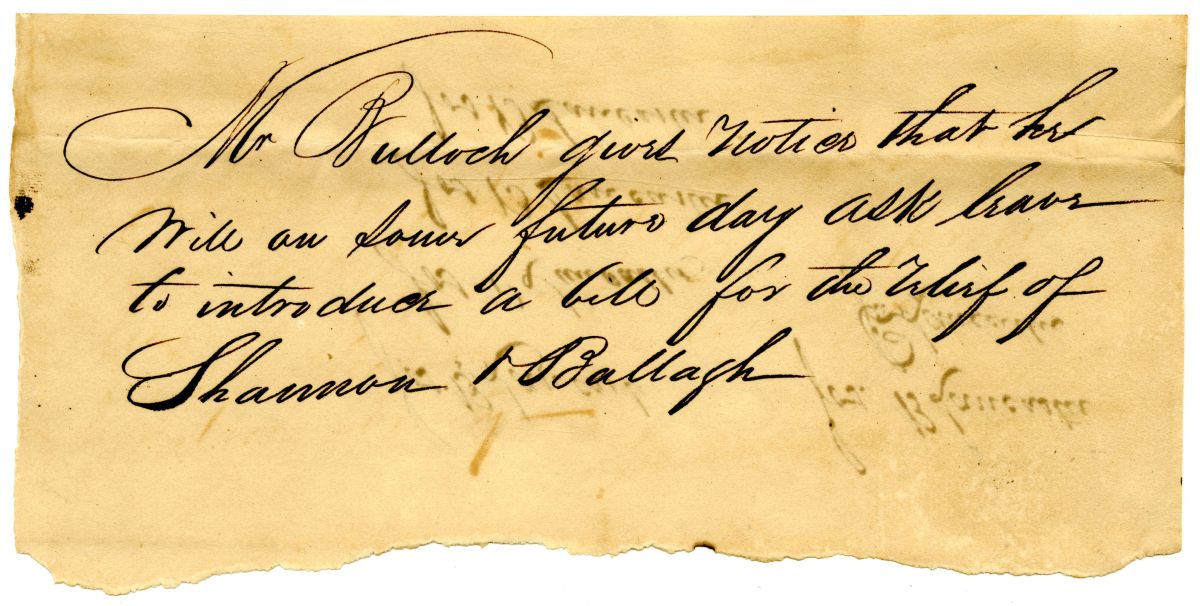 Mr Bulloch gives Notice that he
will on some future day ask leave
to introduce a bill for the relief of
Shannon & Ballagh